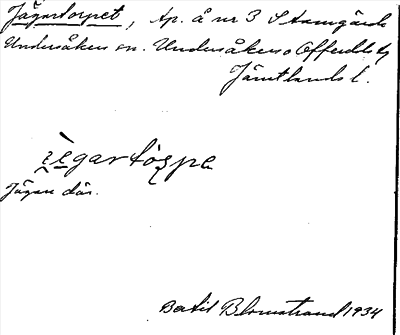 Jägartorpet, tp. å nr 3 Stamgärde
Undersåkers sn. Undersåkers o Offerdals tg
Jämtlands l.
i̯egartórpe
Jägare där.
Bertil Blomstrand 1934